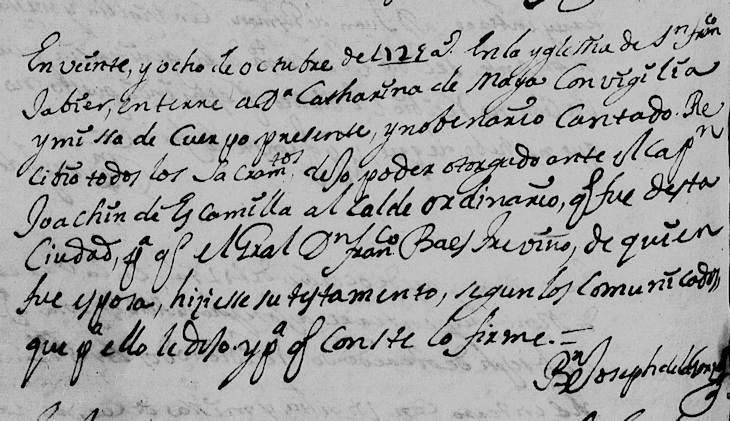 En veinte, y ocho de octubre de 1725 a.s En la yglesia de Sn franco
Jabier, enterre a Da Catharina de Maya Con vigilia
y missa de Cuerpo presente, y nobenario Cantado. Re
cibio todos los Sacramtos, dejo poder otorgado ante el capn
Joachin de Escamilla alcalde ordinario, q̃ fue desta
Ciudad, pa q̃ el Gral Dn franco Baes treviño, de quien
fue esposa, hiziesse su testamento, segun los Comunicados,
que pa ello le dejo. y pa q̃ Conste lo firme. =
Br Joseph de